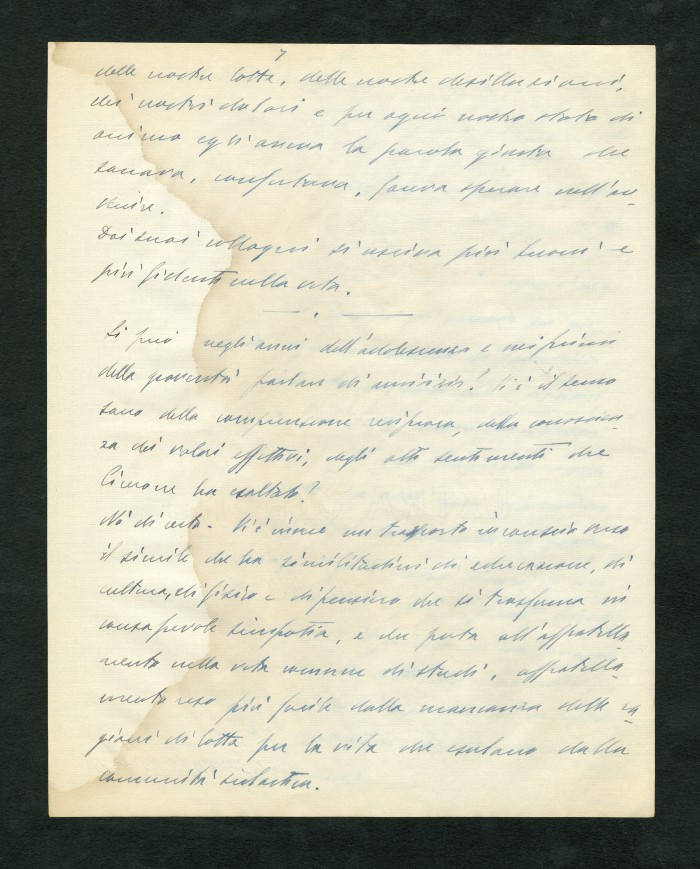 7
delle nostre lotte, delle nostre desillusioni,
dei nostri dolori e per ogni nostro stato di
animo egli aveva la parola giusta che
sanava, confortava, faceva sperare nell'av-
venire.
Dai suoi colloqui si usciva più buoni e
più fidenti nella vita.
Si può negli anni dell'adolescenza e nei primi
della gioventù parlare di amicizia? Vi è il senso
sano della comprensione reciproca, della conoscen-
za dei valori effettivi, degli alti sentimenti che
Cicerone ha esaltato?
No di certo. Vi è invece un trasporto inconscio verso
il simile che ha similitudini di educazione, di
cultura, di fisico e di pensiero che si trasforma in
consapevole simpatia, e che porta all'affratella-
mento nella vita comune di studi, affratella-
mento reso più facile dalla mancanza delle ra-
gioni di lotta per la vita che esulano dalla
comunità scolastica.